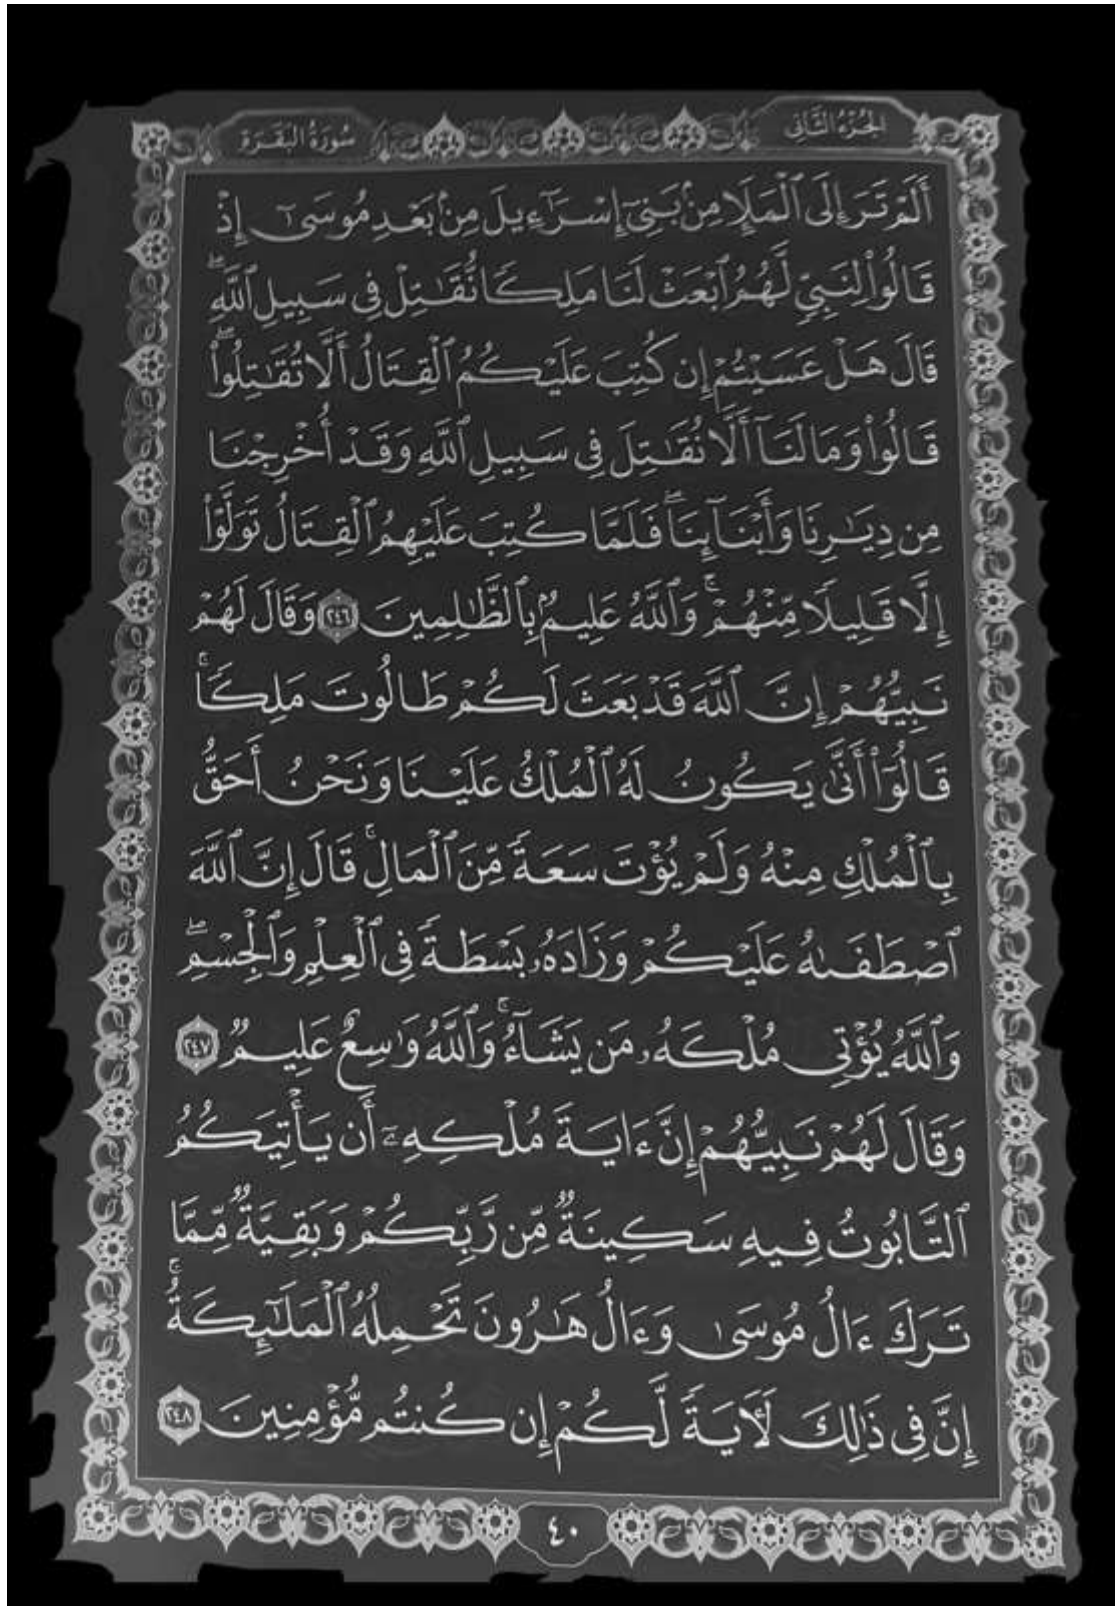 الجزء الثاني
سورة البقرة
أَلَمْ تَرَ إِلَى ٱلْمَلَإِ مِنۢ بَنِىٓ إِسْرَٰٓءِيلَ مِنۢ بَعْدِ مُوسَىٰٓ إِذْ
قَالُوا۟ لِنَبِىٍّ لَّهُمُ ٱبْعَثْ لَنَا مَلِكًا نُّقَٰتِلْ فِى سَبِيلِ ٱللَّهِ ۖ
قَالَ هَلْ عَسَيْتُمْ إِن كُتِبَ عَلَيْكُمُ ٱلْقِتَالُ أَلَّا تُقَٰتِلُوا۟ ۖ
قَالُوا۟ وَمَا لَنَآ أَلَّا نُقَٰتِلَ فِى سَبِيلِ ٱللَّهِ وَقَدْ أُخْرِجْنَا
مِن دِيَٰرِنَا وَأَبْنَآئِنَا ۖ فَلَمَّا كُتِبَ عَلَيْهِمُ ٱلْقِتَالُ تَوَلَّوْا۟
إِلَّا قَلِيلًا مِّنْهُمْ ۗ وَٱللَّهُ عَلِيمٌۢ بِٱلظَّٰلِمِينَ ٢٤٦ وَقَالَ لَهُمْ
نَبِيُّهُمْ إِنَّ ٱللَّهَ قَدْ بَعَثَ لَكُمْ طَالُوتَ مَلِكًا ۚ
قَالُوٓا۟ أَنَّىٰ يَكُونُ لَهُ ٱلْمُلْكُ عَلَيْنَا وَنَحْنُ أَحَقُّ
بِٱلْمُلْكِ مِنْهُ وَلَمْ يُؤْتَ سَعَةً مِّنَ ٱلْمَالِ ۚ قَالَ إِنَّ ٱللَّهَ
ٱصْطَفَىٰهُ عَلَيْكُمْ وَزَادَهُۥ بَسْطَةً فِى ٱلْعِلْمِ وَٱلْجِسْمِ ۖ
وَٱللَّهُ يُؤْتِى مُلْكَهُۥ مَن يَشَآءُ ۚ وَٱللَّهُ وَٰسِعٌ عَلِيمٌ ٢٤٧
وَقَالَ لَهُمْ نَبِيُّهُمْ إِنَّ ءَايَةَ مُلْكِهِۦٓ أَن يَأْتِيَكُمُ
ٱلتَّابُوتُ فِيهِ سَكِينَةٌ مِّن رَّبِّكُمْ وَبَقِيَّةٌ مِّمَّا
تَرَكَ ءَالُ مُوسَىٰ وَءَالُ هَٰرُونَ تَحْمِلُهُ ٱلْمَلَٰٓئِكَةُ ۚ
إِنَّ فِى ذَٰلِكَ لَءَايَةً لَّكُمْ إِن كُنتُم مُّؤْمِنِينَ ٢٤٨
٤٠